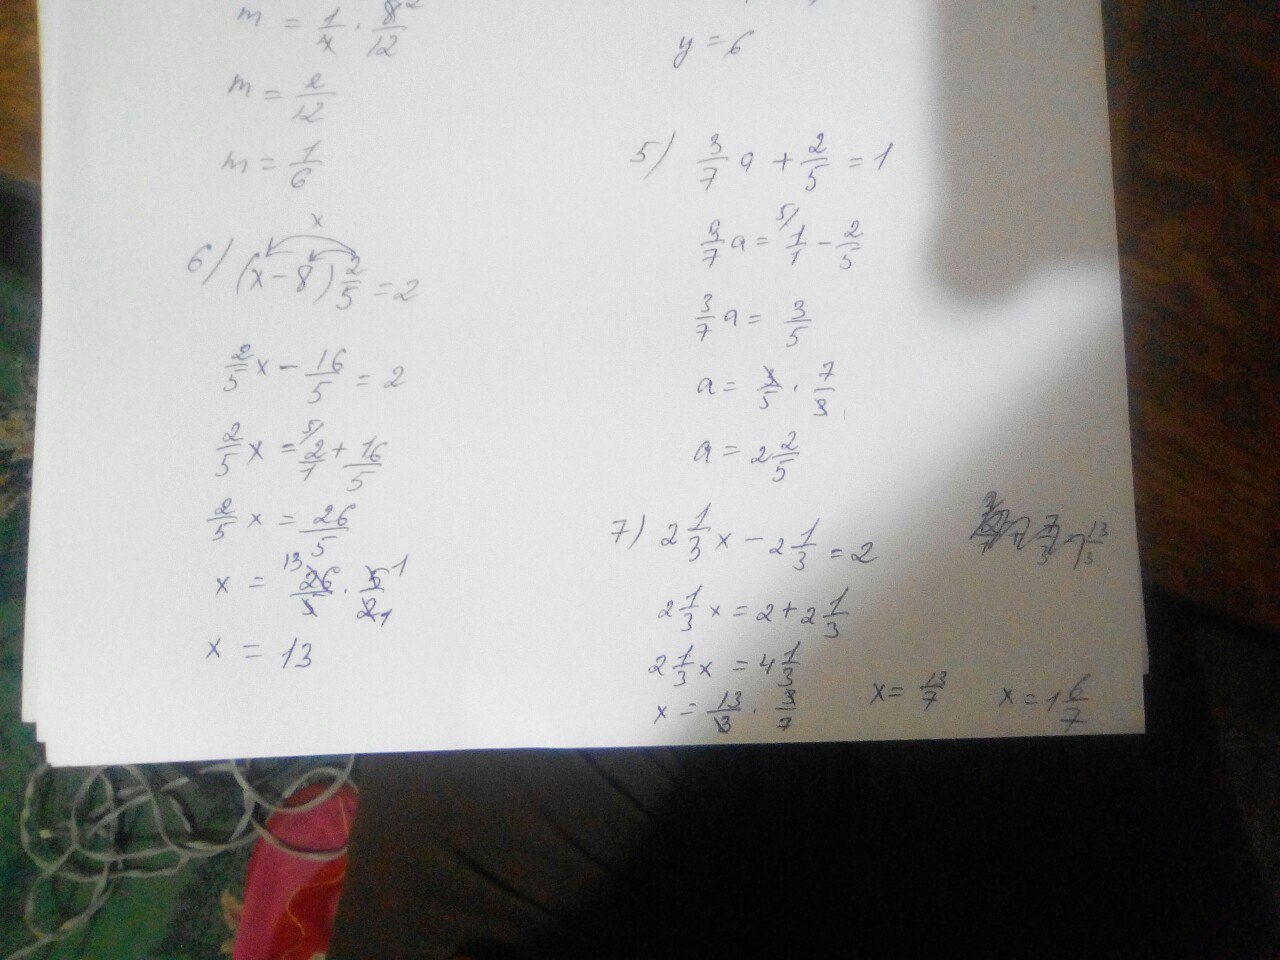 m = 1/4 · 8²/12
m = 2/12
m = 1/6
6) (x - 8) 2/5 = 2
x
2/5 x - 16/5 = 2
2/5 x = 5/ 2/1 + 16/5
2/5 x = 26/5
x = 13 26/5 · 5 1/2 1
x = 13
y = 6
5) 3/7 a + 2/5 = 1
3/7 a = 5/ 1/1 - 2/5
3/7 a = 3/5
a = 3/5 · 7/3
a = 2 2/5
7) 2 1/3 x - 2 1/3 = 2
2 1/3 x = 2 + 2 1/3
2 1/3 x = 4 1/3
x = 13/3 · 3/7 x = 13/7 x = 1 6/7